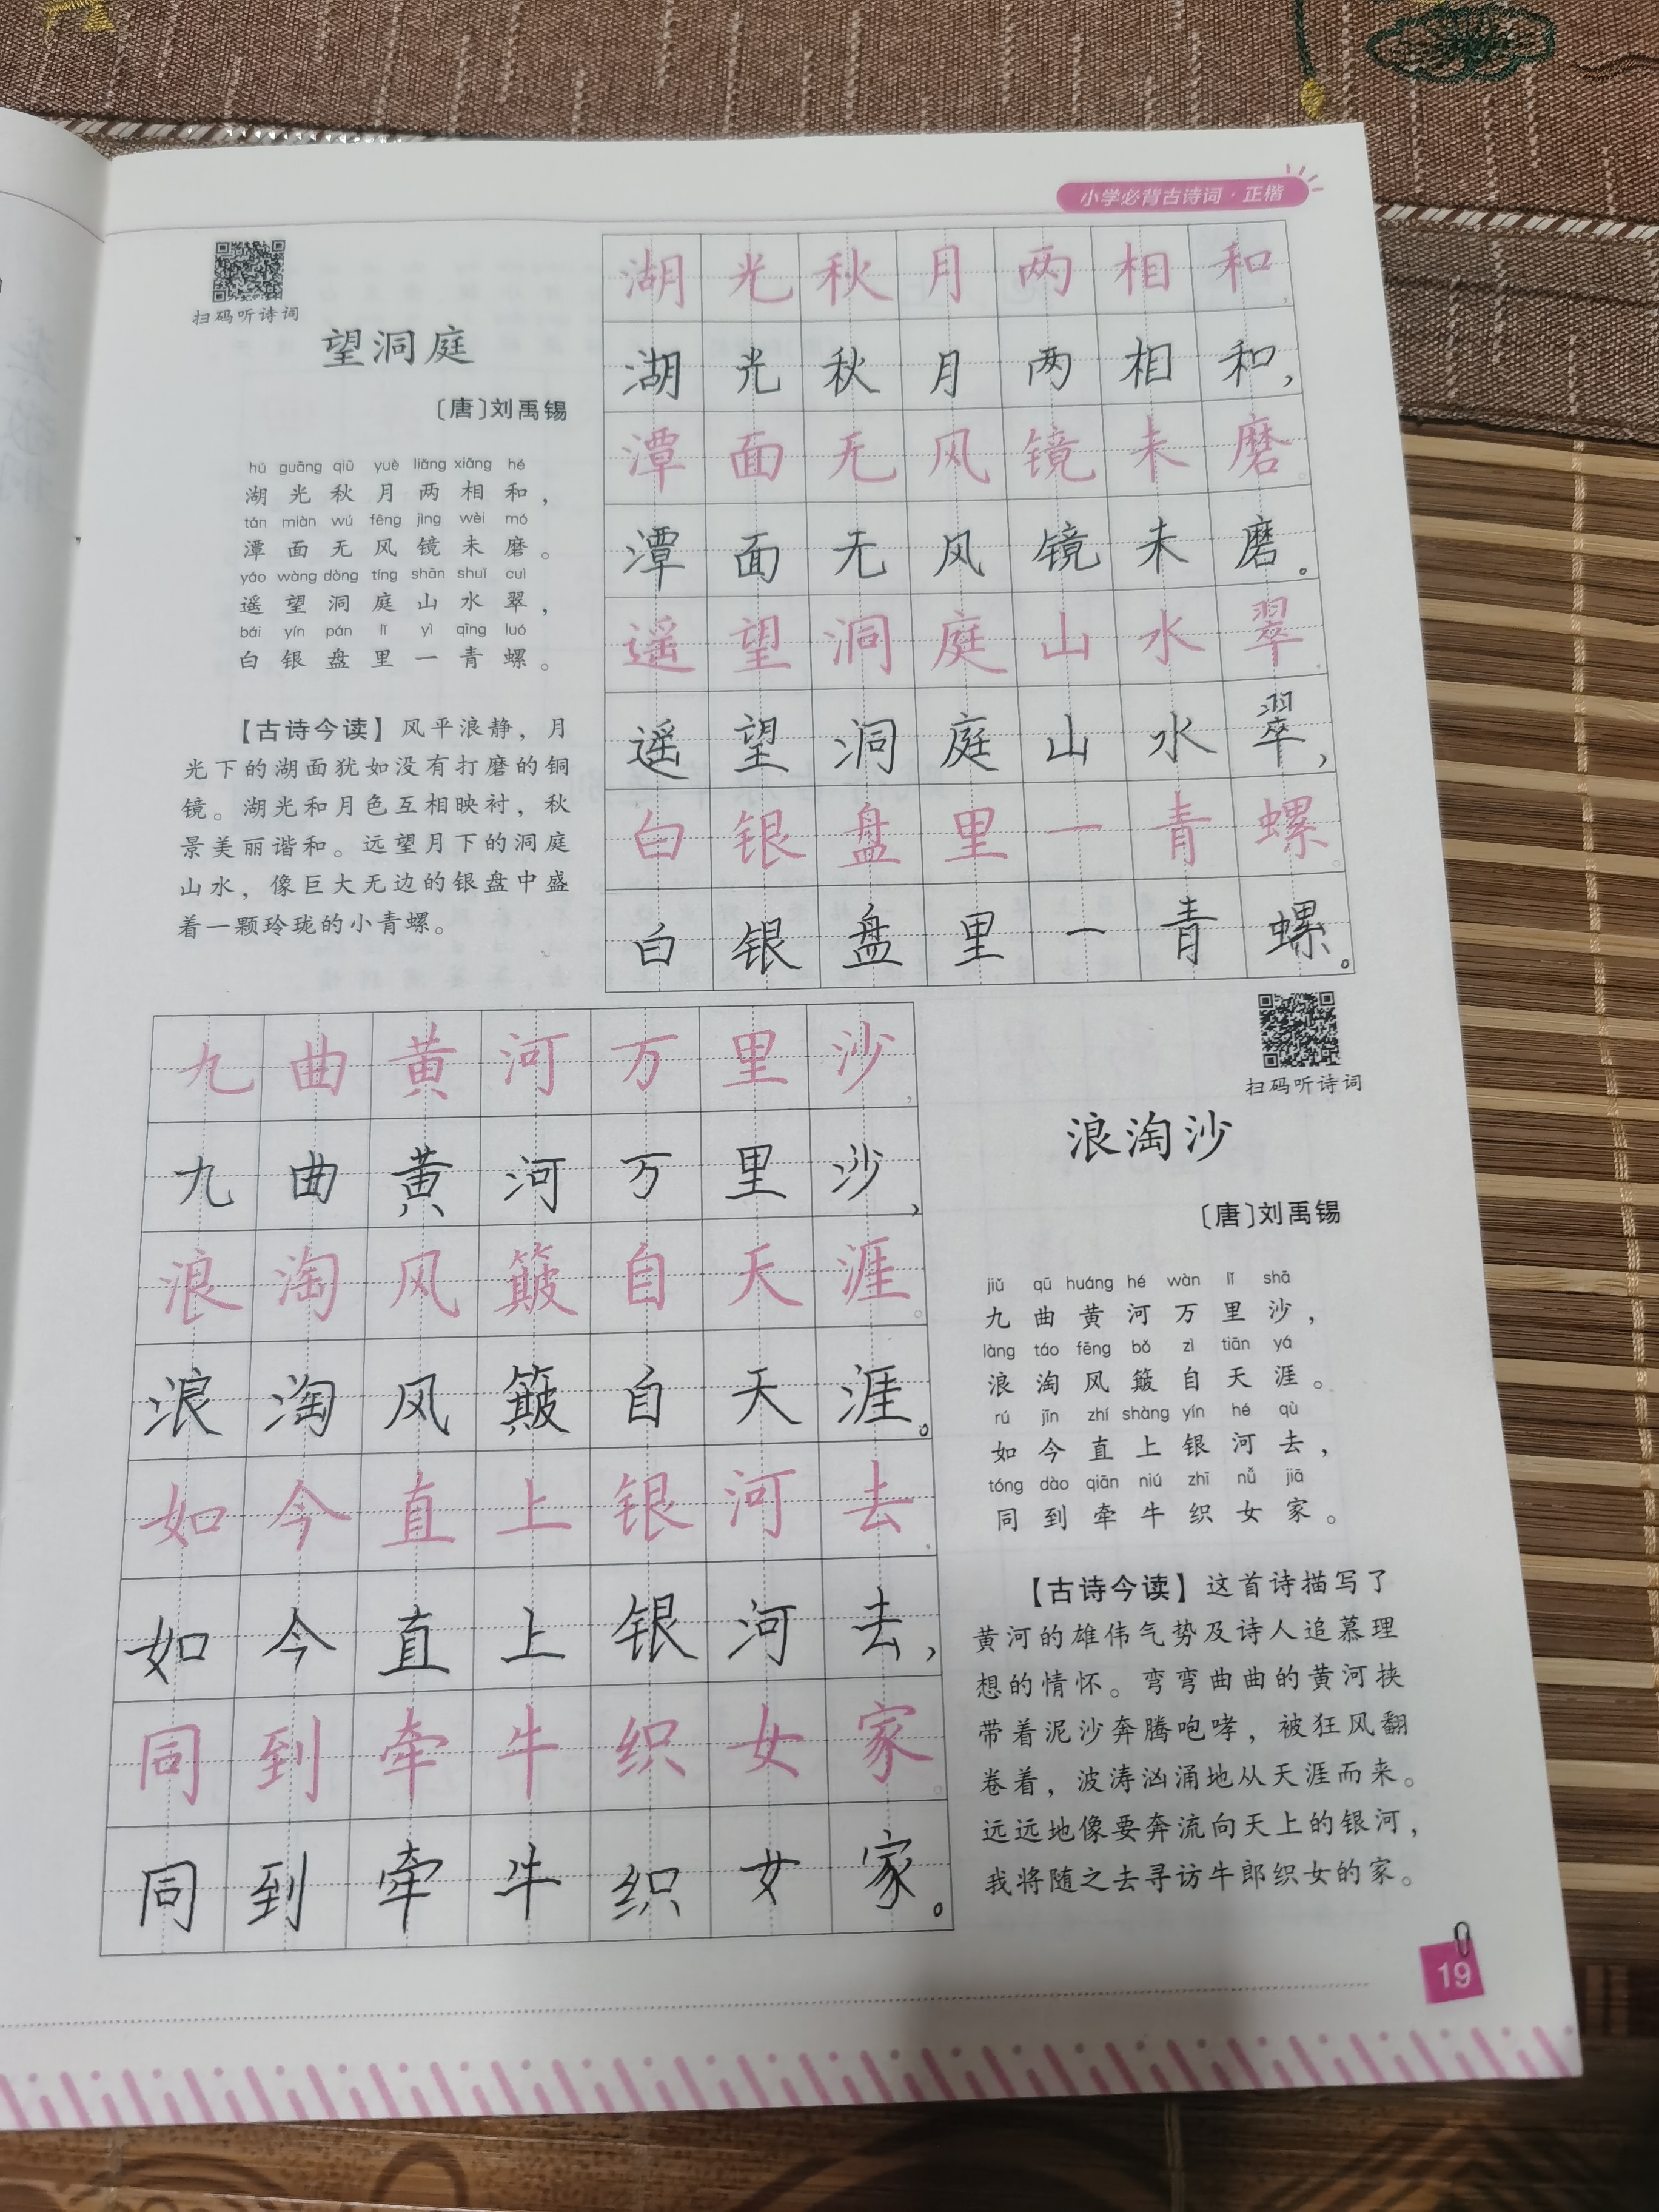 小学必背古诗词·正楷
扫码听诗词
望洞庭
〔唐〕刘禹锡
hú guāng qiū yuè liǎng xiāng hé
湖光秋月两相和，
tán miàn wú fēng jìng wèi mó
潭面无风镜未磨。
yáo wàng dòng tíng shān shuǐ cuì
遥望洞庭山水翠，
bái yín pán lǐ yì qīng luó
白银盘里一青螺。
【古诗今读】风平浪静，月
光下的湖面犹如没有打磨的铜
镜。湖光和月色互相映衬，秋
景美丽谐和。远望月下的洞庭
山水，像巨大无边的银盘中盛
着一颗玲珑的小青螺。
湖光秋月两相和，
湖光秋月两相和，
潭面无风镜未磨。
潭面无风镜未磨。
遥望洞庭山水翠，
遥望洞庭山水翠，
白银盘里一青螺。
白银盘里一青螺。
九曲黄河万里沙，
九曲黄河万里沙，
浪淘风簸自天涯。
浪淘风簸自天涯。
如今直上银河去，
如今直上银河去，
同到牵牛织女家。
同到牵牛织女家。
扫码听诗词
浪淘沙
〔唐〕刘禹锡
jiǔ qū huáng hé wàn lǐ shā
九曲黄河万里沙，
làng táo fēng bǒ zì tiān yá
浪淘风簸自天涯。
rú jīn zhí shàng yín hé qù
如今直上银河去，
tóng dào qiān niú zhī nǚ jiā
同到牵牛织女家。
【古诗今读】这首诗描写了
黄河的雄伟气势及诗人追慕理
想的情怀。弯弯曲曲的黄河挟
带着泥沙奔腾咆哮，被狂风翻
卷着，波涛汹涌地从天涯而来。
远远地像要奔流向天上的银河，
我将随之去寻访牛郎织女的家。
19